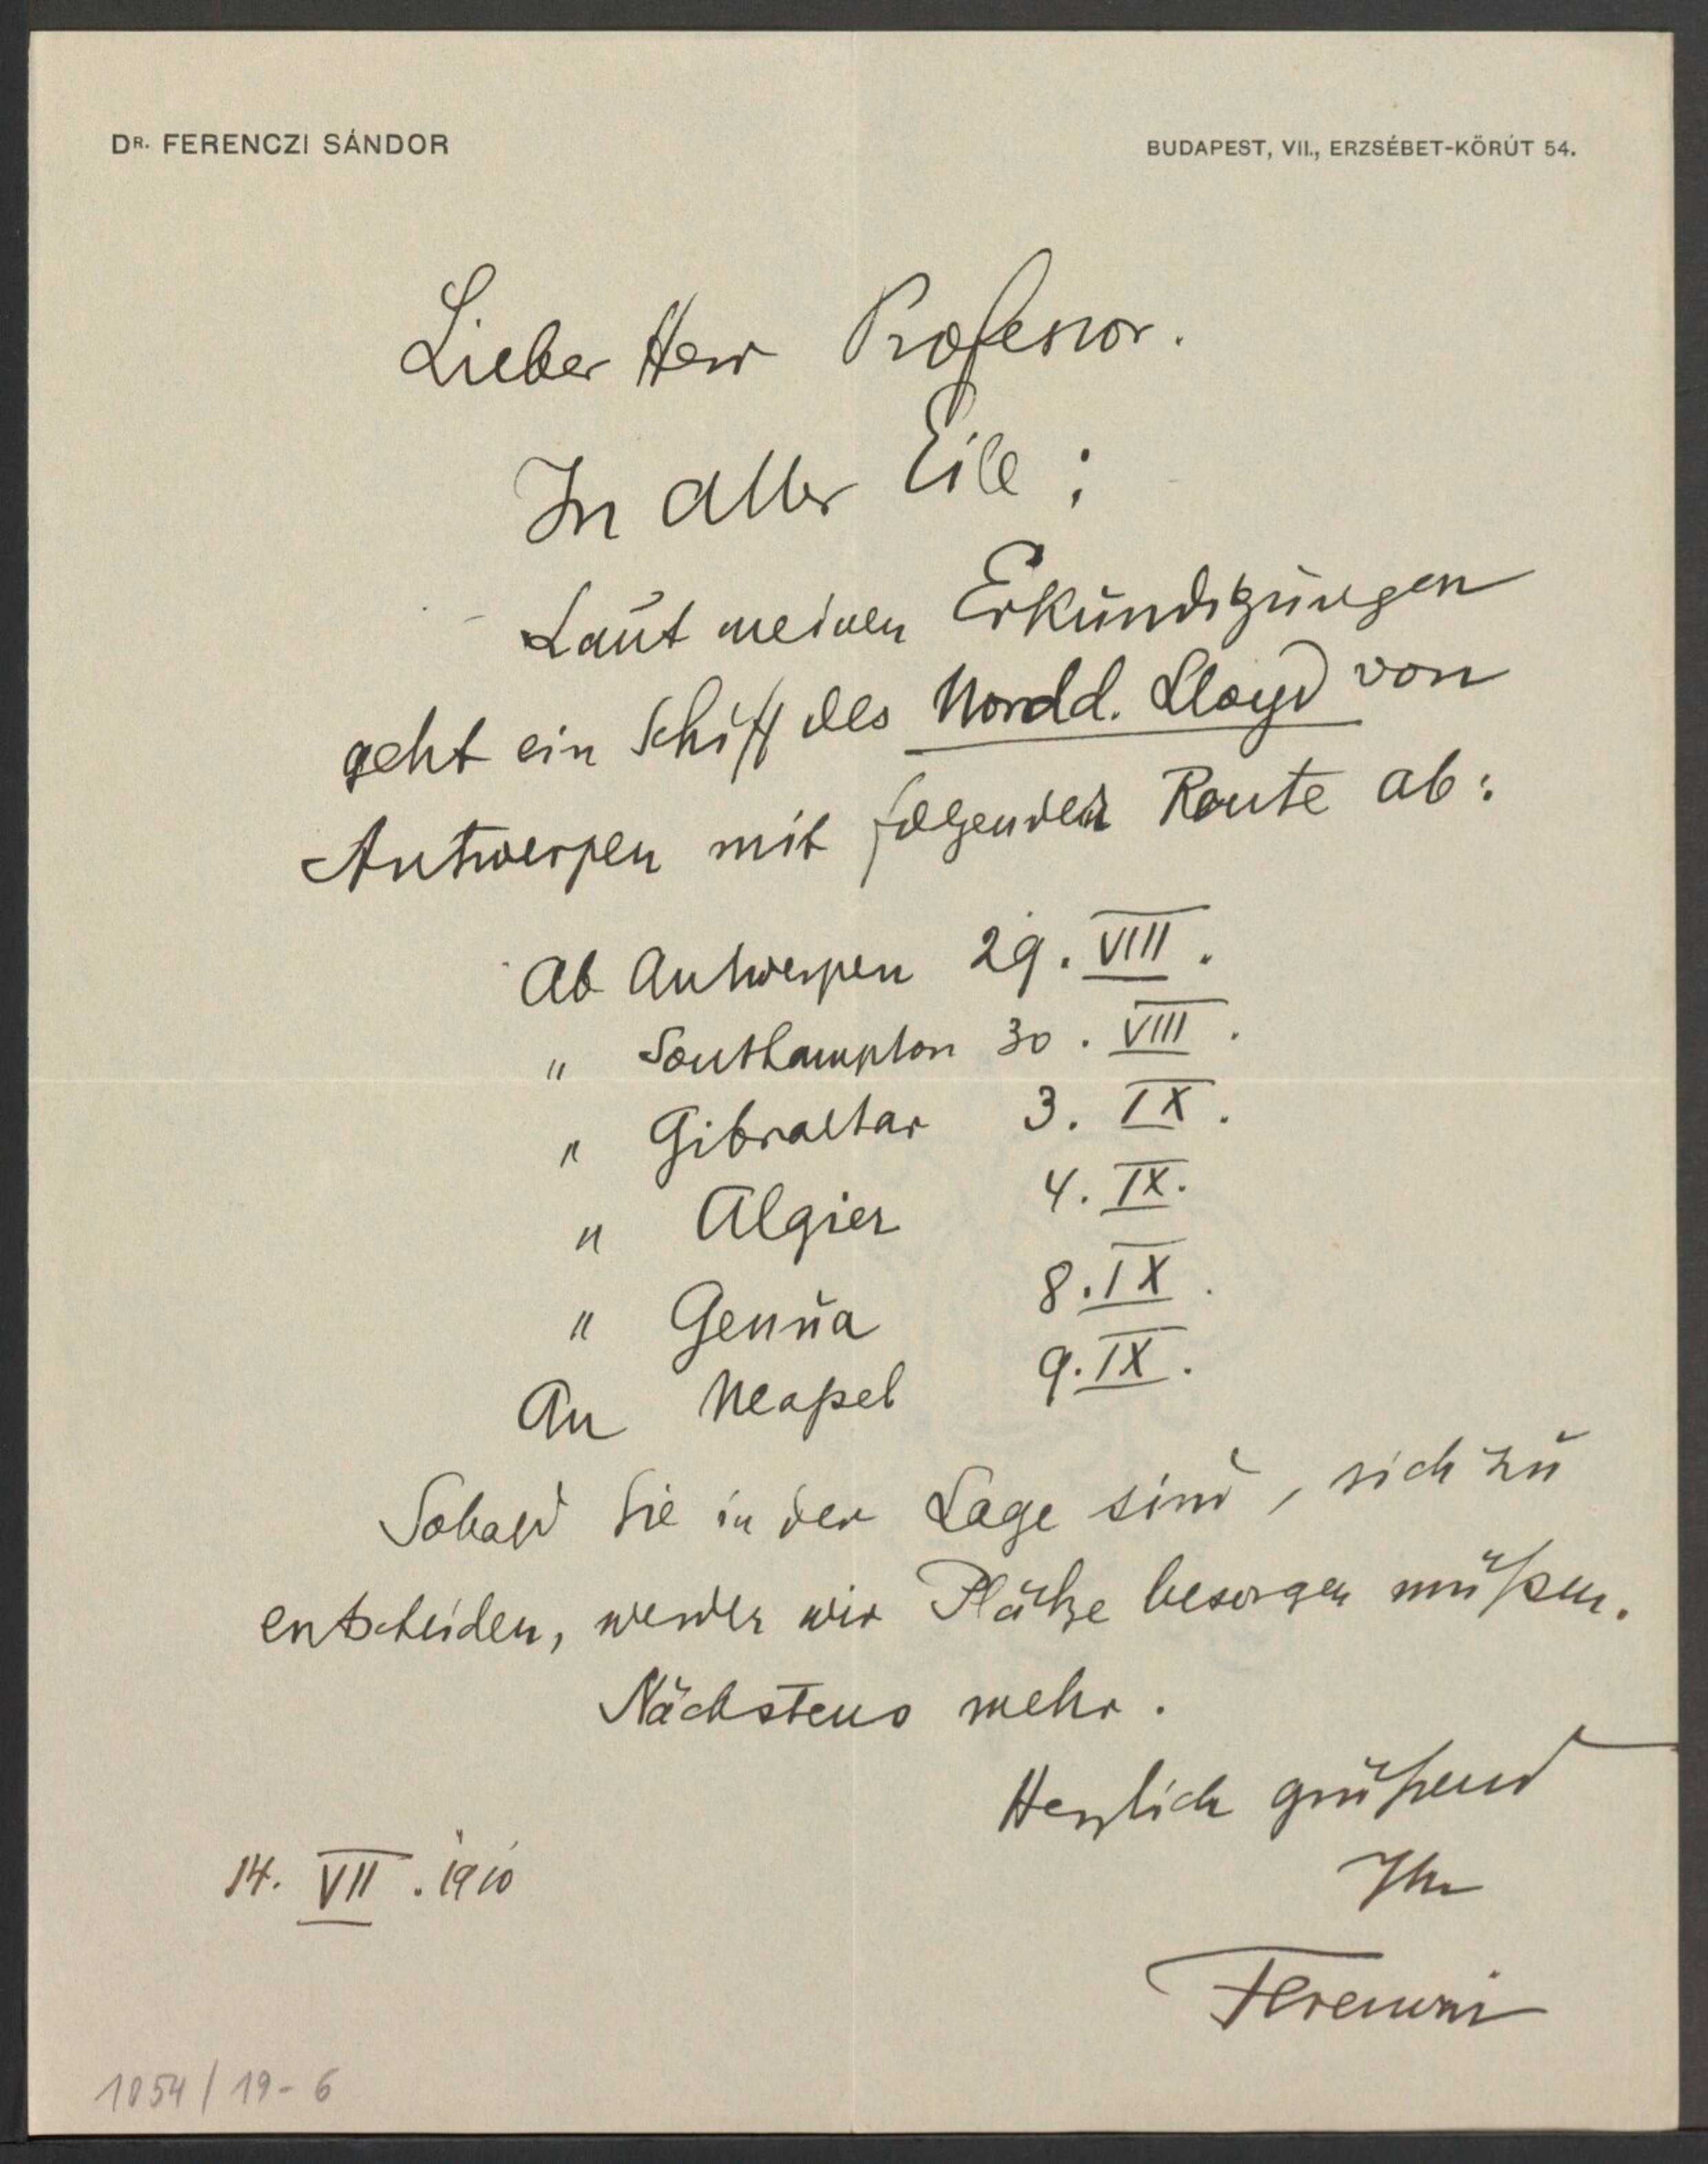 DR. FERENCZI SÁNDOR
BUDAPEST, VII., ERZSÉBET-KÖRÚT 54.
Lieber Herr Professor.
In aller Eile :
Laut meinen Erkundigungen
geht ein Schiff des Nordd. Lloyd von
Antwerpen mit folgender Route ab :
Ab Antwerpen 29. VIII.
" Southampton 30. VIII.
" Gibraltar 3. IX.
" Algier 4. IX.
" Genua 8. IX.
An Neapel 9. IX.
Sobald Sie in der Lage sind, sich zu
entscheiden, werden wir Plätze besorgen müßen.
Nächstens mehr.
Herzlich grüßend
Ihr
Ferenczi
14. VII. 1910
1054 / 19-6